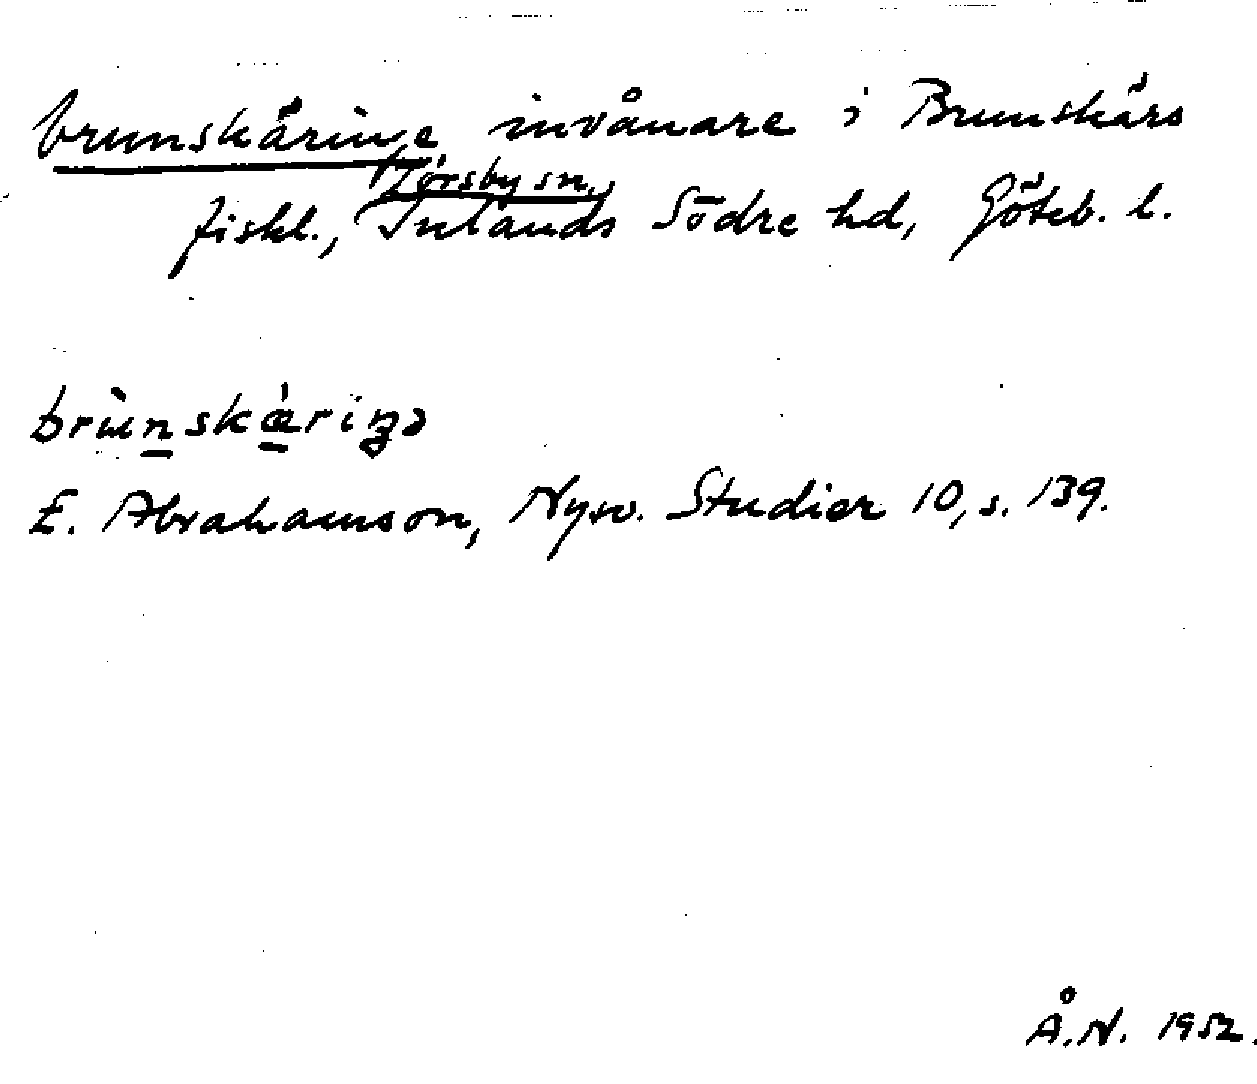 brunskäringe invånare i Brunskärs
fiskl., Torsby sn, Inlands Södre hd, Göteb. l.
brùnskæ̀riŋə
E. Abrahamson, Nysv. Studier 10, s. 139.
Å.N. 1952.